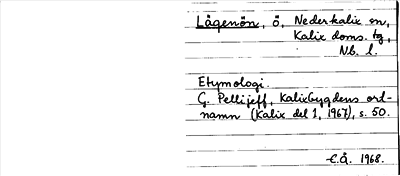 Lågenön, ö, Nederkalix sn,
Kalix doms. tg,
Nb. l.
Etymologi.
G. Pellijeff, Kalixbygdens ort-
namn (Kalix del 1, 1967), s. 50.
C.Å. 1968.